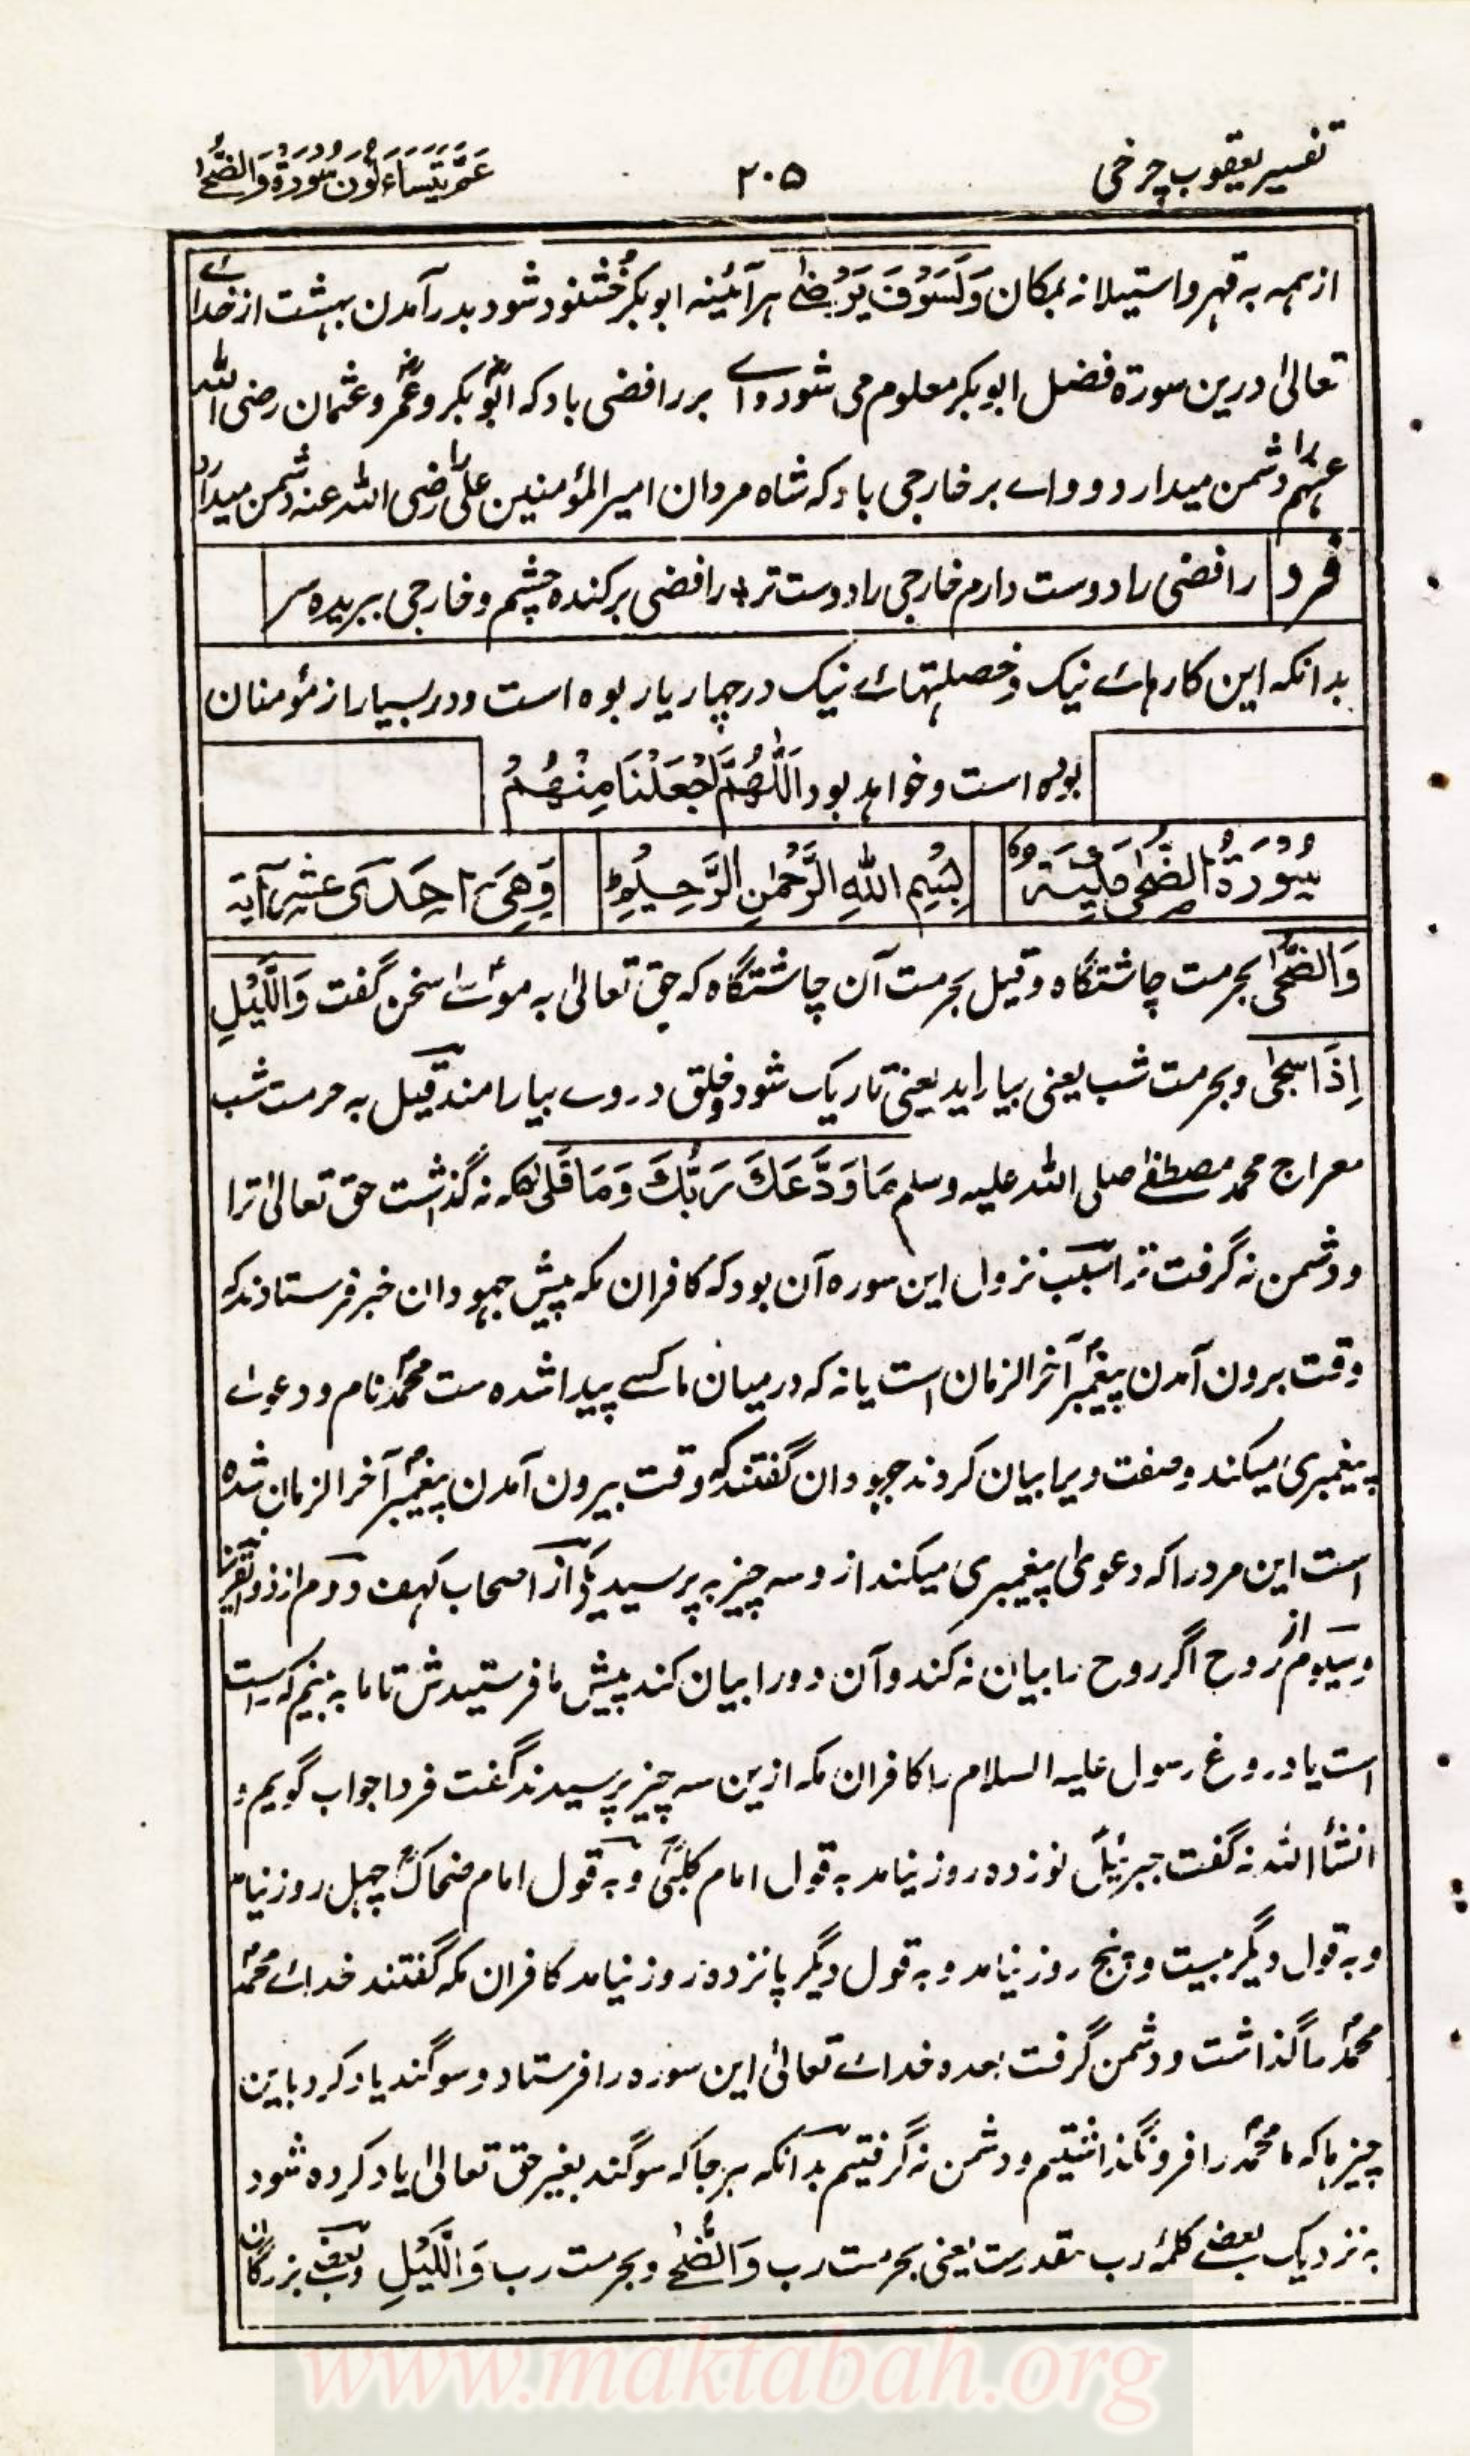 تفسیر یعقوب چرخی
۲۰۵
عَمَّ يَتَسَاءَلُونَ سُورَةُ وَالضُّحٰی
از ہمہ بہ قہر و استیلا نہ بمکان وَلَسَوْفَ يَرْضٰی ہر آئینہ ابوبکرؓ خشنود شود بدر آمدن بہشت از خداے
تعالیٰ درین سورۃ فضل ابوبکر معلوم می شود واے بر رافضی باد کہ ابوبکرؓ و عمرؓ و عثمان رضی اللہ
عنہم را دشمن میدارد و واے بر خارجی باد کہ شاہ مردان امیر المؤمنین علی را رضی اللہ عنہ دشمن میدارد
فرد
رافضی را دوست دارم خارجی را دوست تر ؞ رافضی برکندہ چشم و خارجی ببریدہ سر
بدانکہ این کارہائے نیک و خصلتہائے نیک در چہار یار بوہ است و در بسیار از مؤمنان
بودہ است و خواہد بود اَللّٰهُمَّ اجْعَلْنَا مِنْهُمْ
سُوْرَةُ الضُّحٰی مَكِّيَّةٌ
بِسْمِ اللهِ الرَّحْمٰنِ الرَّحِيْمِ
وَهِیَ اِحْدٰی عَشَر آیة
وَالضُّحٰی بحرمت چاشتگاہ و قیل بحرمت آن چاشتگاہ کہ حق تعالیٰ بہ موسیٰؑ سخن گفت وَالَّيْلِ
اِذَا سَجٰی و بحرمت شب یعنی بیاراید یعنی تاریک شود و خلق در وے بیارامند و قیل بہ حرمت شب
معراج محمد مصطفےٰ صلی اللہ علیہ وسلم مَا وَدَّعَكَ رَبُّكَ وَمَا قَلٰی کہ نہ گذاشت حق تعالیٰ ترا
و دشمن نہ گرفت ترا سبب نزول این سورہ آن بود کہ کافران مکہ پیش جہودان خبر فرستادند کہ
وقت برون آمدن پیغمبرؐ آخر الزمان است یا نہ کہ درمیان ما کسے پیدا شدہ ست محمدؐ نام و دعوے
پیغمبری میکند و صفت ویرا بیان کردند جہودان گفتند کہ وقت بیرون آمدن پیغمبرؐ آخر الزمان شدہ
است این مرد را کہ دعویٰ پیغمبری میکند از و سہ چیز بہ پرسید یکی از اصحاب کہف و دوم از ذوالقرنین
و سیوم از روح اگر روح را بیان نہ کند و آن دو را بیان کند پیش ما فرستیدش تا ما بہ بینم کہ راست
است یا دروغ رسول علیہ السلام را کافران مکہ ازین سہ چیز پرسیدند گفت فردا جواب گویم و
انشأ اللہ نہ گفت جبرئیلؑ نوزدہ روز نیامد بہ قول امام کلبیؒ و بہ قول امام ضحاکؒ چہل روز نیامد
و بہ قول دیگر بیست و پنج روز نیامد و بہ قول دیگر پانزدہ روز نیامد کافران مکہ گفتند خدائے محمدؐ
محمدؐ را گذاشت و دشمن گرفت بعدہ خدائے تعالیٰ این سورہ را فرستاد و سوگند یاد کرد باین
چیز ہا کہ ما محمدؐ را فرو نگذاشتیم و دشمن نہ گرفتیم بدانکہ ہر جا کہ سوگند بغیر حق تعالیٰ یاد کردہ شود
بہ نزدیک بعضے کلمۂ رب مقدرست یعنی بحرمت رب وَالضُّحٰے و بحرمت رب وَالَّيْلِ و بعضے بزرگان
www.maktabah.org